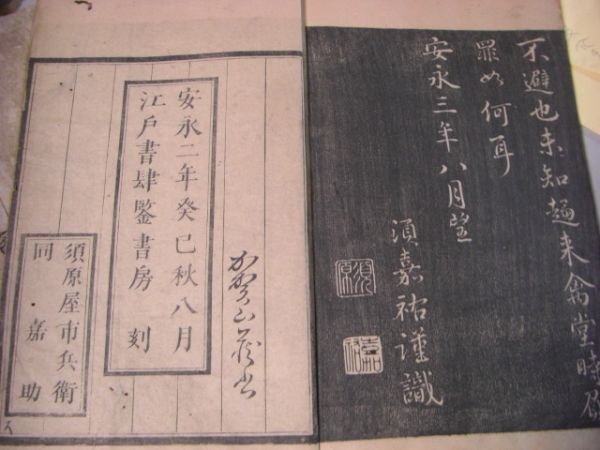 不避也未知趙来禽堂時
罪如何耳
安永三年八月望
須嘉祐謹識
須原
嘉祐
安永二年癸巳秋八月
江戸書肆鑒書房 刻
須原屋市兵衛
同 嘉助